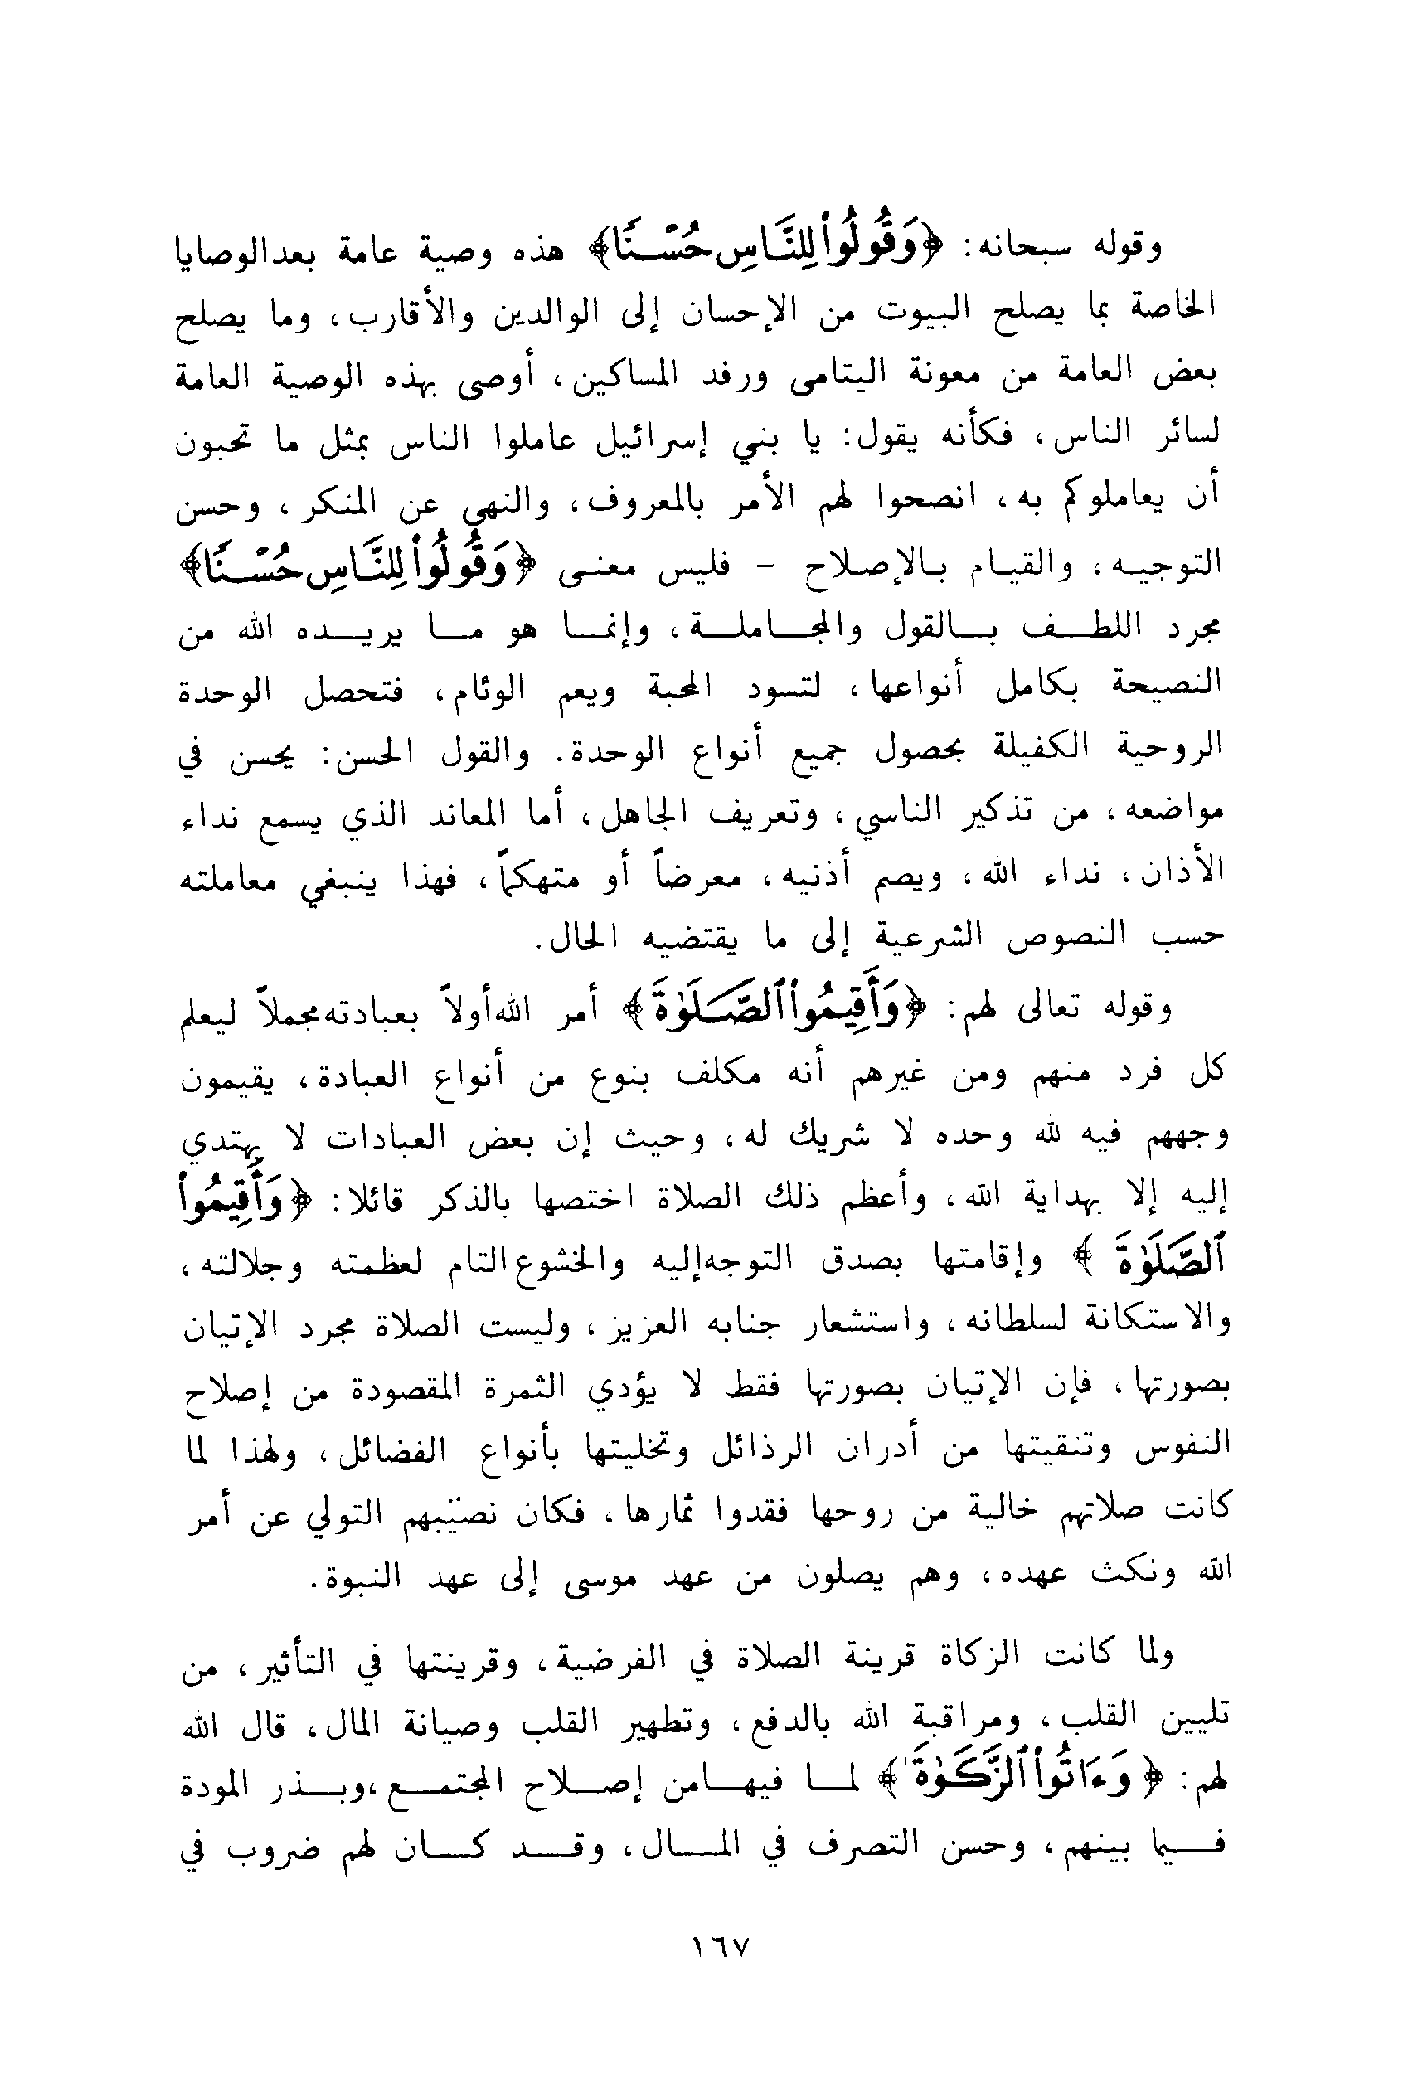 وقوله سبحانه: ﴿وَقُولُواْ لِلنَّاسِ حُسْنًا﴾ هذه وصية عامة بعد الوصايا
الخاصة بما يصلح البيوت من الإحسان إلى الوالدين والأقارب، وما يصلح
بعض العامة من معونة اليتامى ورفد المساكين، أوصى بهذه الوصية العامة
لسائر الناس، فكأنه يقول: يا بني إسرائيل عاملوا الناس بمثل ما تحبون
أن يعاملوكم به، انصحوا لهم الأمر بالمعروف، والنهي عن المنكر، وحسن
التوجيه، والقيام بالإصلاح - فليس معنى ﴿وَقُولُواْ لِلنَّاسِ حُسْنًا﴾
مجرد اللطف بالقول والمجاملة، وإنما هو ما يريده الله من
النصيحة بكامل أنواعها، لتسود المحبة ويعم الوئام، فتحصل الوحدة
الروحية الكفيلة بحصول جميع أنواع الوحدة. والقول الحسن: يحسن في
مواضعه، من تذكير الناسي، وتعريف الجاهل، أما المعاند الذي يسمع نداء
الأذان، نداء الله، ويصم أذنيه، معرضاً أو متهكماً، فهذا ينبغي معاملته
حسب النصوص الشرعية إلى ما يقتضيه الحال.
وقوله تعالى لهم: ﴿وَأَقِيمُواْ ٱلصَّلَوٰةَ﴾ أمر الله أولاً بعبادته مجملاً ليعلم
كل فرد منهم ومن غيرهم أنه مكلف بنوع من أنواع العبادة، يقيمون
وجههم فيه لله وحده لا شريك له، وحيث إن بعض العبادات لا يهتدي
إليه إلا بهداية الله، وأعظم ذلك الصلاة اختصها بالذكر قائلا: ﴿وَأَقِيمُواْ
ٱلصَّلَوٰةَ﴾ وإقامتها بصدق التوجه إليه والخشوع التام لعظمته وجلالته،
والاستكانة لسلطانه، واستشعار جنابه العزيز، وليست الصلاة مجرد الإتيان
بصورتها، فإن الإتيان بصورتها فقط لا يؤدي الثمرة المقصودة من إصلاح
النفوس وتنقيتها من أدران الرذائل وتخليتها بأنواع الفضائل، ولهذا لما
كانت صلاتهم خالية من روحها فقدوا ثمارها، فكان نصيبهم التولي عن أمر
الله ونكث عهده، وهم يصلون من عهد موسى إلى عهد النبوة.
ولما كانت الزكاة قرينة الصلاة في الفرضية، وقرينتها في التأثير، من
تليين القلب، ومراقبة الله بالدفع، وتطهير القلب وصيانة المال، قال الله
لهم: ﴿وَءَاتُواْ ٱلزَّكَوٰةَ﴾ لما فيها من إصلاح المجتمع، وبذر المودة
فيما بينهم، وحسن التصرف في المال، وقد كان لهم ضروب في
١٦٧